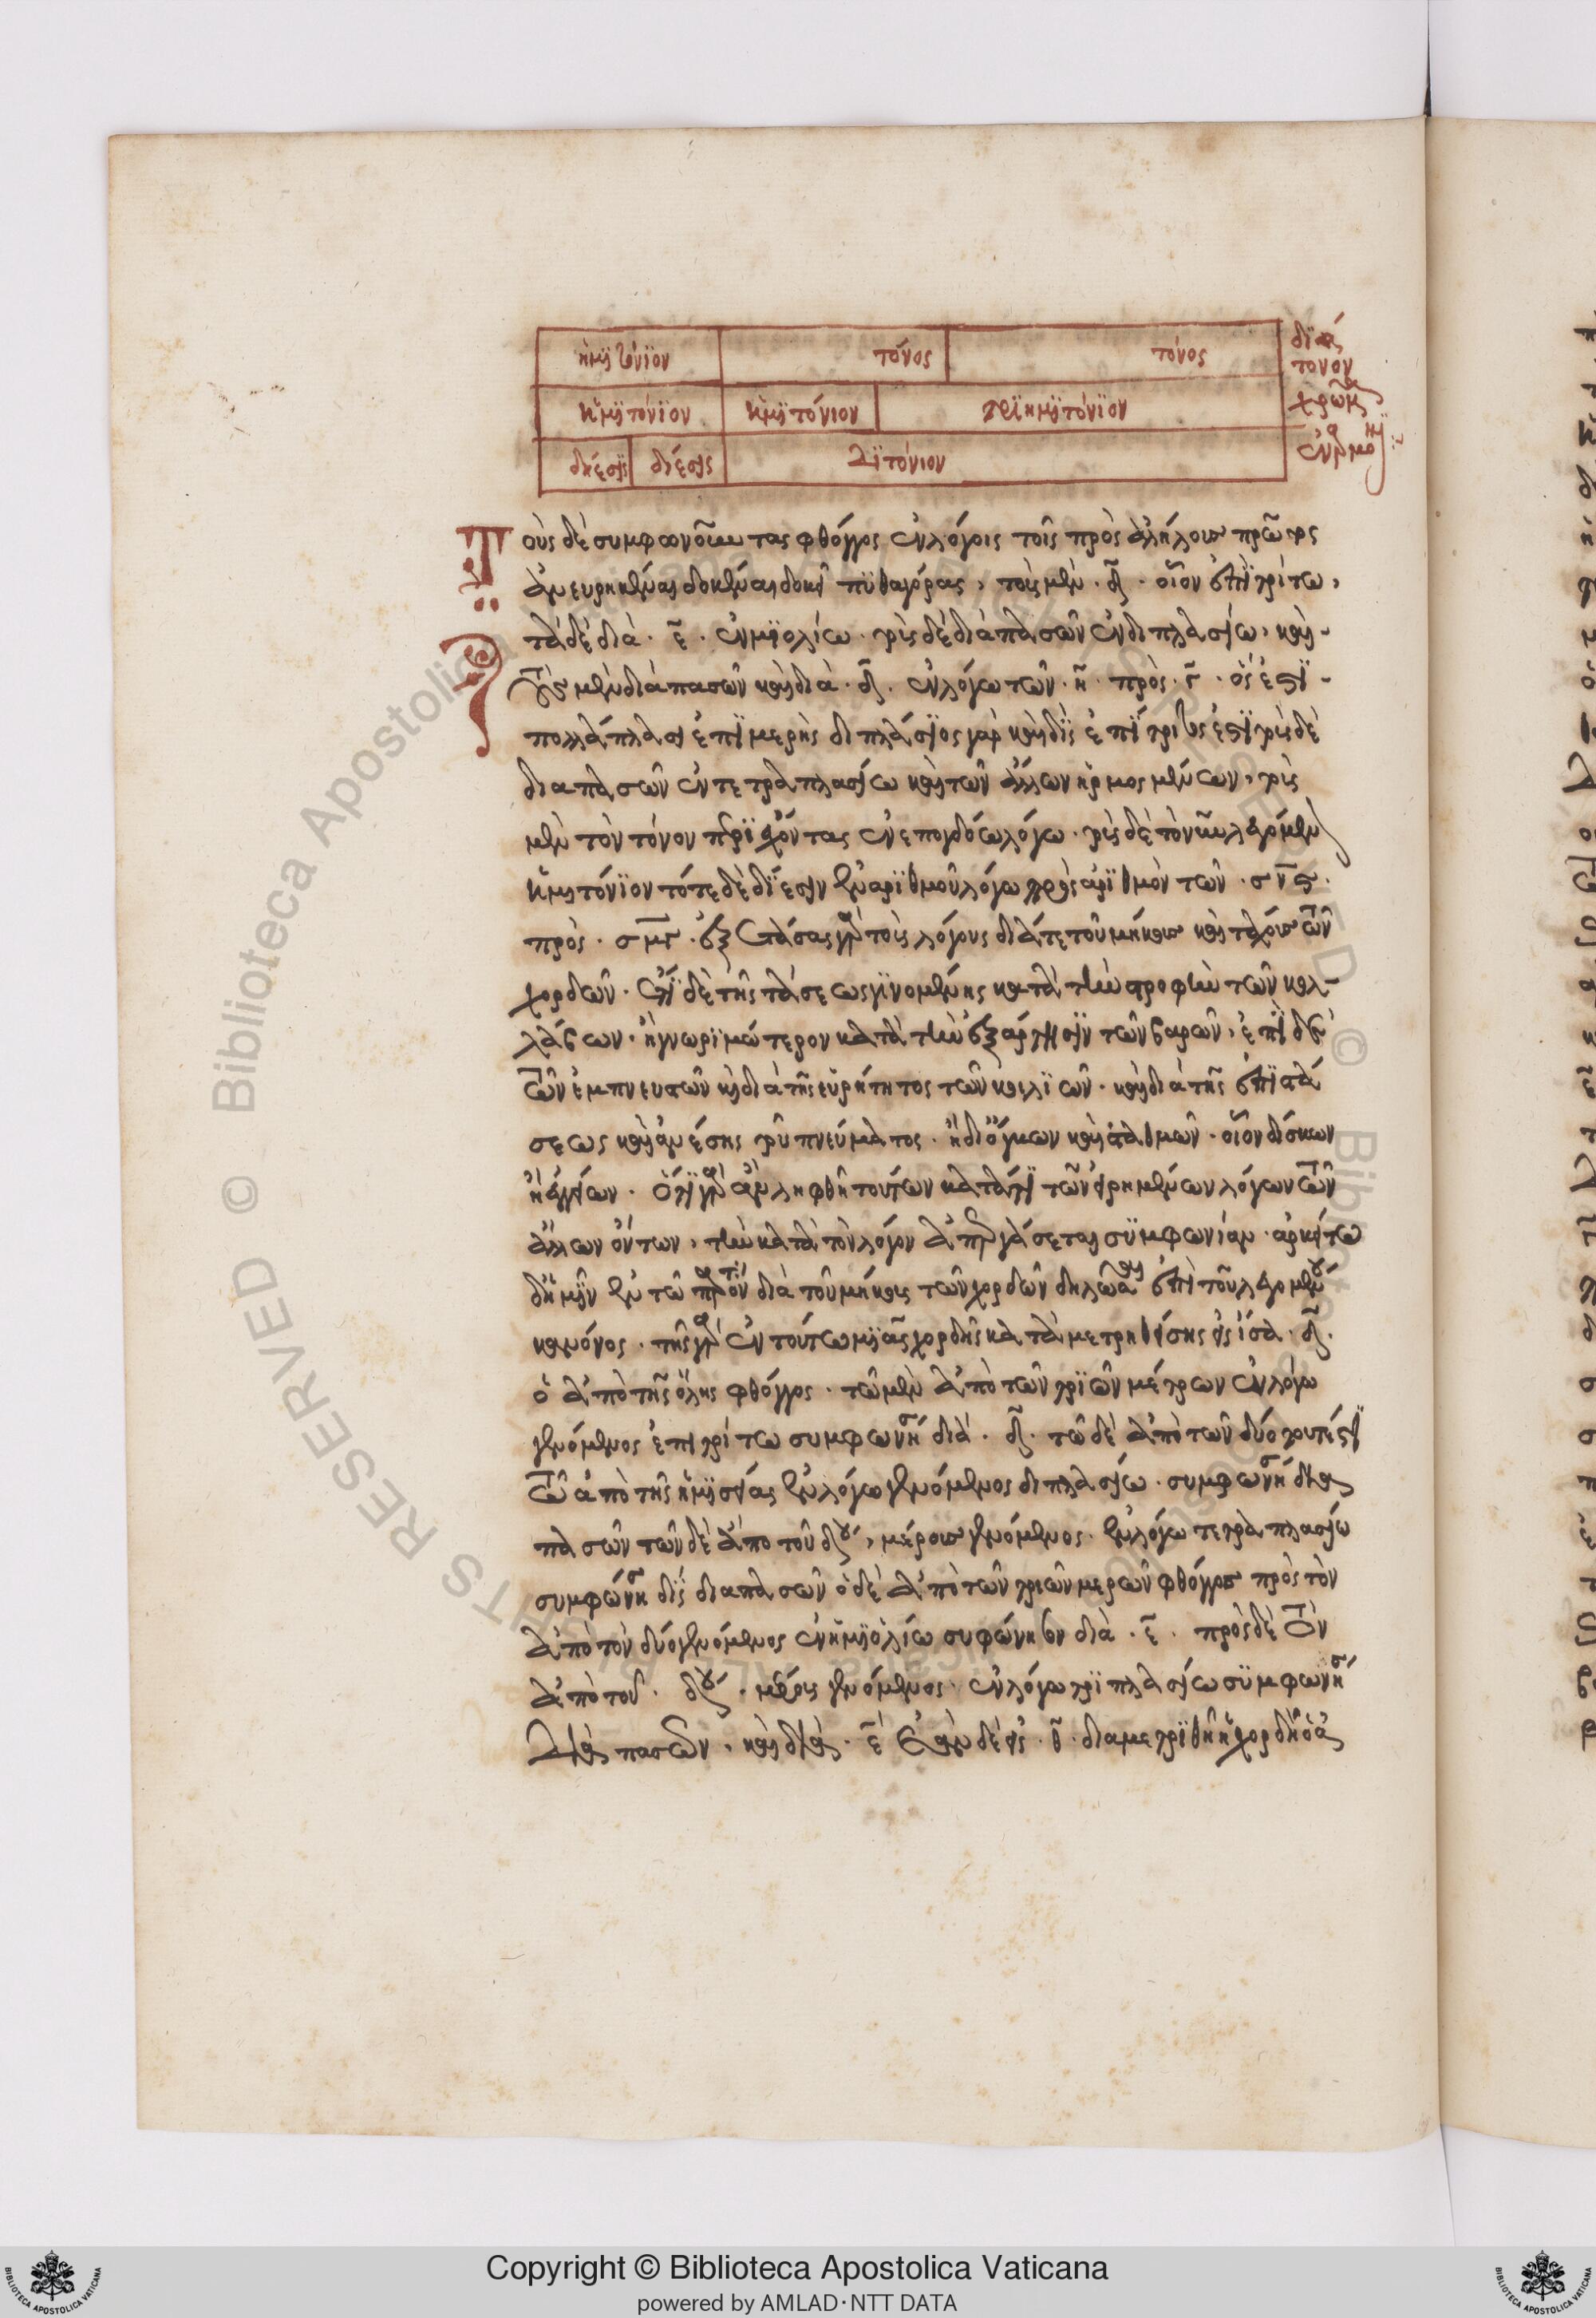 ἡμιτόνιον τόνος τόνος διάτονον
ἡμιτόνιον ἡμιτόνιον τριημιτόνιον χρῶμα
δίεσις δίεσις διτόνιον
Τοὺς δὲ συμφωνοῦντας φθόγγους ἐν λόγοις τοῖς πρὸς ἀλήλους πρῶτος
ἀνευρηκέναι δοκεῖ πυθαγόρας, τοὺς μὲν · δ · οἷον ἐπιτρίτω,
τὰ δὲ διὰ · ε · ἐν μιολίω · τοὺς δὲ διὰ πασῶν ἐν διπλασίω, καὶ
τοὺς μὲν διὰ πασῶν καὶ διὰ · δ · ἐν λόγω τῶν · η · πρὸς · γ · ὅς ἐστι
πολλαπλασιεπιμερὴς διπλάσιος γὰρ καὶ δὶς ἐπίτριτός ἐστι τοὺς δὲ
διαπασῶν ἐν τετραπλασίω καὶ τῶν ἄλλων ἡρμοσμένων, τοὺς
μὲν τὸν τόνον περιέχοντας ἐν επογδόω λόγω · τοὺς δὲ τὸν νῦν λεγόμεν
ἡμιτόνιον τότε δὲ δίεσιν ἐν ἀριθμοῦ λόγω πρὸς ἀριθμὸν τῶν · σνϛ ·
πρὸς · σμγ · ἐξετάσας γὰρ τοὺς λόγους διά τε τοῦ μήκους καὶ τοῦ πάχους τῶν
χορδῶν · ἔτι δὲ τῆς τάσεως γινομένης κατὰ τὴν στροφὴν τῶν κολ
λάβων · ἢ γνωριμώτερον κατὰ τὴν ἐξάρτησιν τῶν βαρῶν, ἐπὶ δὲ
τῶν ἐμπνευστῶν καὶ διὰ τῆς εὐρήτητος τῶν κοιλιῶν · καὶ διὰ τῆς ἐπιτά
σεως καὶ ἀνέσης τοῦ πνεύματος · ἢ δι' ὄγκων καὶ σταθμῶν · οἷον δίσκων
ἢ ἀγγείων · ὅτι γὰρ ἂν ληφθῆ τούτων κατά τι τῶν εἰρημένων λόγων τῶν
ἄλλων ὄντων, τὴν κατὰ τὸν λόγον ἀπεργάσεται συμφωνίαν · ἀρκείτω
δ' ἡμῖν ἐν τῶ παρόντι διὰ τοῦ μήκους τῶν χορδῶν δηλῶσαι ἐπὶ τοῦ λεγομένου
κανόνος · τῆς γὰρ ἐν τούτω μιᾶς χορδῆς καταμετρηθείσης εἰς ἴσα · δ ·
ὁ ἀπὸ τῆς ὅλης φθόγγος · τῶ μὲν ἀπὸ τῶν τριῶν μέτρων ἐν λόγω
γενόμενος ἐπιτρίτω συμφωνήσει διὰ · δ · τῶ δὲ ἀπὸ τῶν δύο τουτέστι
τῶ ἀπὸ τῆς ἡμισείας ἐν λόγω γενόμενος διπλασίω · συμφωνήσει διὰ
πασῶν τῶν δὲ ἀπὸ τοῦ δου, μέρους γενόμενος · ἐν λόγω τετραπλασίω
συμφώνήσει δὶς διαπασῶν ὁ δὲ ἀπὸ τῶν τριῶν μερῶν φθόγγος πρὸς τὸν
ἀπὸ τὸν δύο γενόμενος ἐν ἡμιολίω συφώνησεν διὰ · ε · πρὸς δὲ τὸν
ἀπὸ τοῦ · δου · μέρους γενόμενος · ἐν λόγω τριπλασίω συμφωνήσει
διὰ πασῶν · καὶ διὰ · ε ἐὰν δὲ εἰς · θ · διαμετριθῆ ἡ χορδὴ ὁ ἀ
Copyright © Biblioteca Apostolica Vaticana
powered by AMLAD·NTT DATA